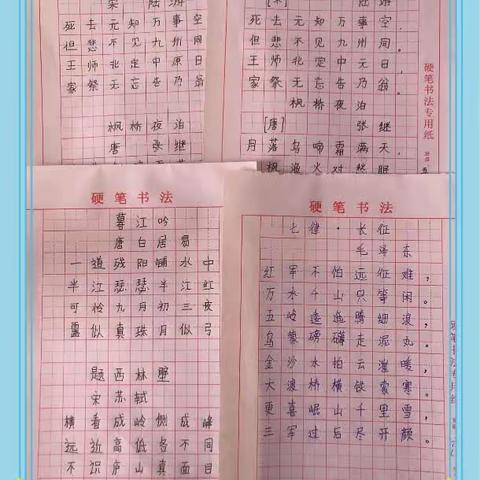 宋 陆游
死去元知万事空
但悲不见九州同
王师北定中原日
家祭无忘告乃翁
枫桥夜泊
唐 张继
[宋] 陆游
死去元知万事空,
但悲不见九州同。
王师北定中元日,
家祭无忘告乃翁。
枫桥夜泊
[唐] 张继
月落乌啼霜满天
枫渔火对愁眠
硬笔书法专用纸
硬笔书法
暮江吟
唐 白居易
一道残阳铺水中
半江瑟瑟半江红
可怜九月初三夜
露似真珠月似弓
题西林壁
宋苏轼
横看成岭侧成峰
远近高低各不同
不识庐山真面目
硬笔书法
七律·长征
毛泽东
红军不怕远征难,
万水千山只等闲。
五岭逶迤腾细浪,
乌蒙磅礴走泥丸。
金沙水拍云崖暖,
大渡桥横铁索寒。
更喜岷山千里雪,
三军过后尽开颜。
硬笔书法专用纸